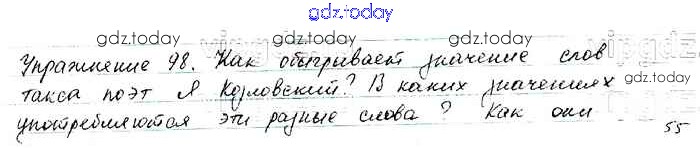 gdz.today
gdz.today
gdz.today
Упражнение 98. Как обыгривает значение слов
такса поэт Я Козловский? В каких значениях
gdz.today
употребляются эти разные слова? Как они
gdz.today
gdz.today
55